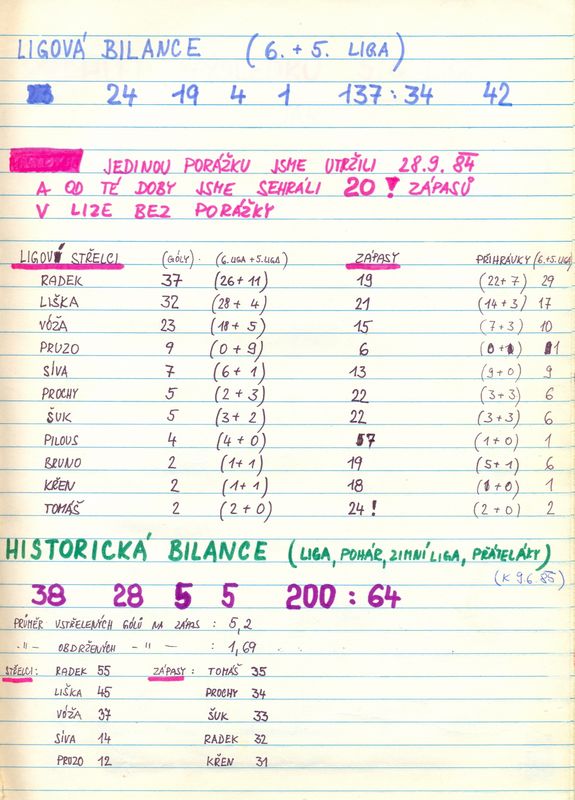 LIGOVÁ BILANCE (6. + 5. LIGA)
24 19 4 1 137:34 42
JEDINOU PORÁŽKU JSME UTRŽILI 28.9.84
A OD TÉ DOBY JSME SEHRÁLI 20! ZÁPASŮ
V LIZE BEZ PORÁŽKY
LIGOVÍ STŘELCI (GÓLY) (6.LIGA + 5.LIGA) ZÁPASY PŘIHRÁVKY (6.+5.LIGA)
RADEK 37 (26+11) 19 (22+7) 29
LIŠKA 32 (28+4) 21 (14+3) 17
VÓŽA 23 (18+5) 15 (7+3) 10
PRUZO 9 (0+9) 6 (0+1) 1
SÍVA 7 (6+1) 13 (9+0) 9
PROCHY 5 (2+3) 22 (3+3) 6
ŠUK 5 (3+2) 22 (3+3) 6
PILOUS 4 (4+0) 7 (1+0) 1
BRUNO 2 (1+1) 19 (5+1) 6
KŘEN 2 (1+1) 18 (1+0) 1
TOMÁŠ 2 (2+0) 24! (2+0) 2
HISTORICKÁ BILANCE (LIGA, POHÁR, ZIMNÍ LIGA, PŘÁTELÁKY)
(K 9.6.85)
38 28 5 5 200:64
PRŮMĚR VSTŘELENÝCH GÓLŮ NA ZÁPAS : 5,2
-"- OBDRŽENÝCH -"- : 1,69
STŘELCI: RADEK 55 ZÁPASY: TOMÁŠ 35
LIŠKA 45 PROCHY 34
VÓŽA 37 ŠUK 33
SÍVA 14 RADEK 32
PRUZO 12 KŘEN 31